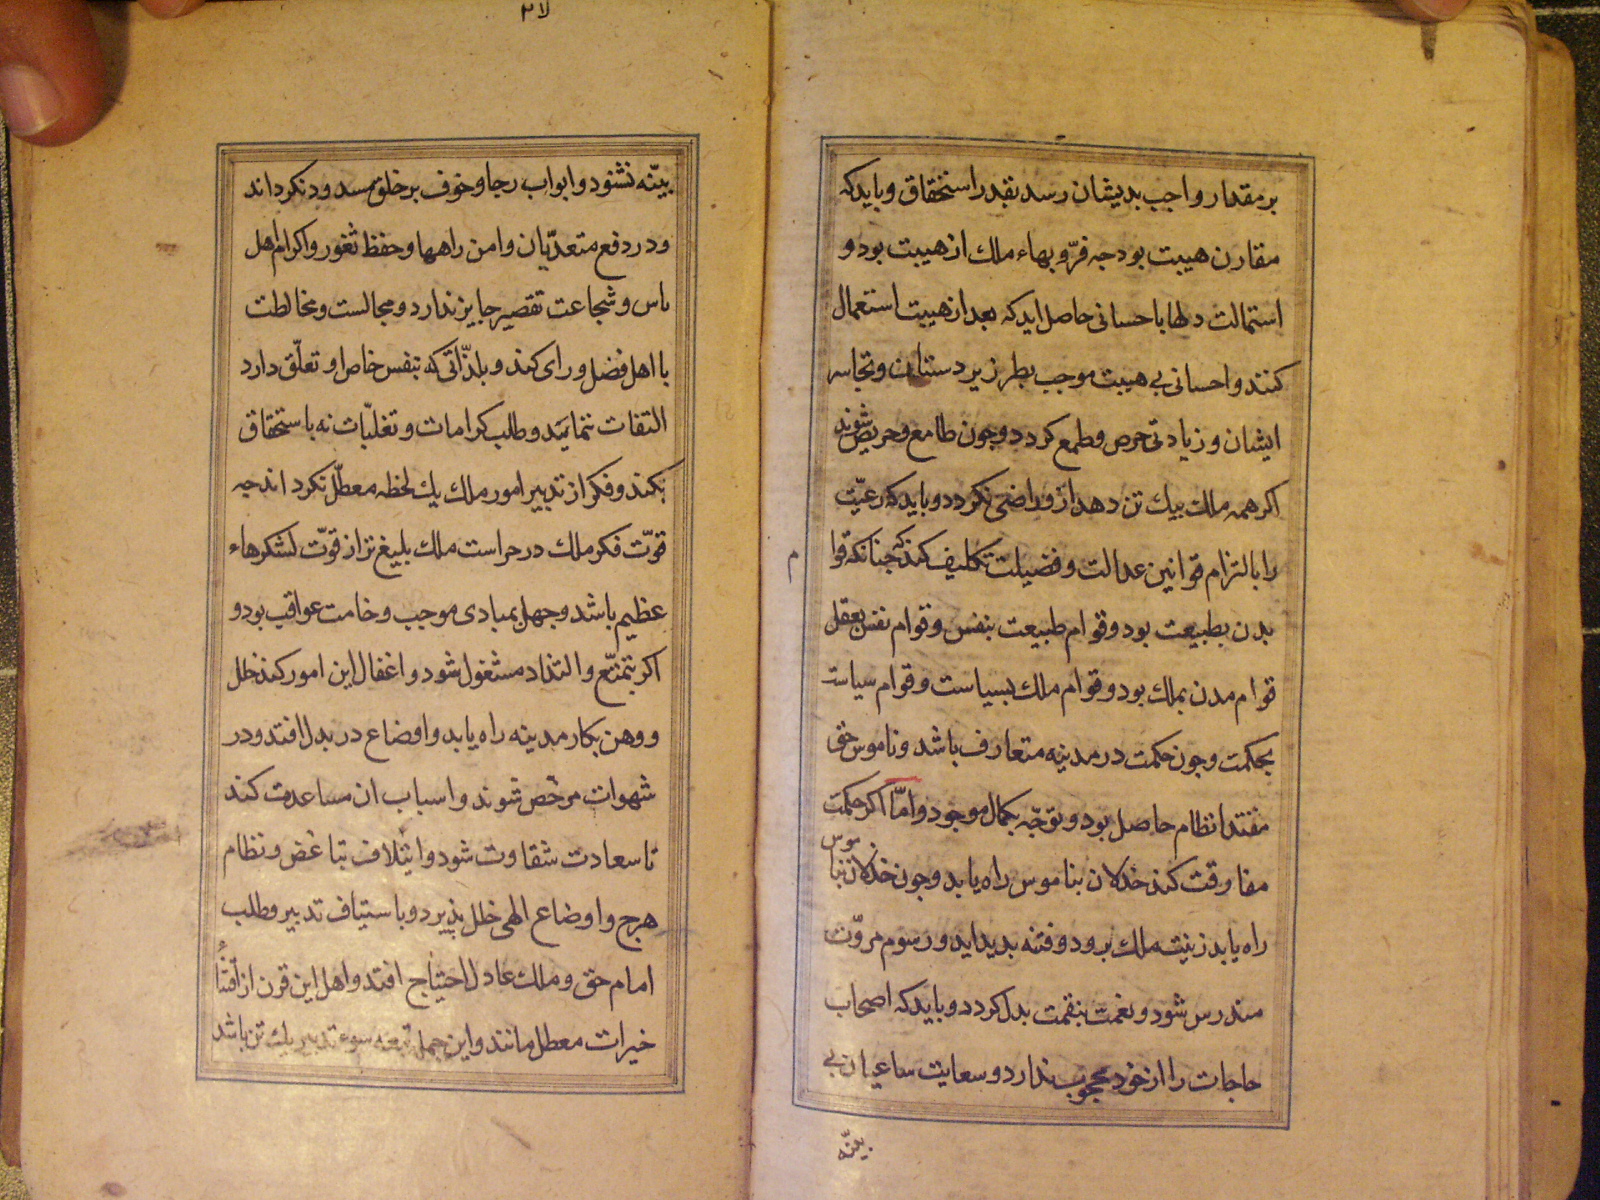 ۲۷
بر مقدار واجب بدیشان رسد بقدر استحقاق و باید که
مقارن هیبت بود جه فرّ و بهاء ملك از هیبت بود و
استمالت دلها باحسانی حاصل اید که بعد از هیبت استعمال
کنند و احسانی بی هیبت موجب بطر زیر دستان و تجاسر
ایشان و زیادتی حرص و طمع کردد و جون طامع و حریص شوند
اکر همه ملك بیك تن دهد ازو راضی نکردد و باید که رعیّت
را بالتزام قوانین عدالت و فضیلت تکلیف کند که جنانکه قوا
م
بدن بطبیعت بود و قوام طبیعت بنفس و قوام نفس بعقل
قوام مدن بملك بود و قوام ملك بسیاست و قوام سیاست
بحکمت و جون حکمت در مدینه متعارف باشد و ناموس حق
مقتدا نظام حاصل بود و توجّه بکمال موجود و امّا اکر حکمت
مفارقت کند خذلان بناموس راه یابد و جون خذلان بنا
موس
راه یابد زینت ملك برود و فتنه بدید اید و رسوم مروّت
مندرس شود و نعمت بنقمت بدل کردد و باید که اصحاب
حاجات را از خود محجوب ندارد و سعایت ساعیان بی
بیّنه
بیّنه نشنود و ابواب رجا و خوف بر خلق مسدود نکرداند
و در دفع متعدّیان و امن راهها و حفظ ثغور و اکرام اهل
باس و شجاعت تقصیر جایز ندارد و مجالست و مخالطت
با اهل فضل و رای کند و بلذّاتی که بنفس خاص او تعلّق دارد
التفات ننماید و طلب کرامات و تغلّبات نه باستحقاق
بکند و فکر از تدبیر امور ملك یك لحظه معطّل نکرداند جه
قوّت فکر ملك در حراست ملك بلیغ تر از قوّت لشکرهاء
عظیم باشد و جهل بمبادی موجب وخامت عواقب بود و
اکر بتمتّع و التذاد مشغول شود و اغفال این امور کند خلل
و وهن بکار مدینه راه یابد و اوضاع در بدل افتد و در
شهوات مرخّص شوند و اسباب ان مساعدت کند
تا سعادت شقاوت شود و ایتلاف تباغض و نظام
هرج و اوضاع الهی خلل بذیرد و باستیناف تدبیر و طلب
امام حق و ملك عادل احتیاج افتد و اهل این قرن از اقتنا
خیرات معطل مانند و این جمله تبعه سوء تدبیر یك تن باشد